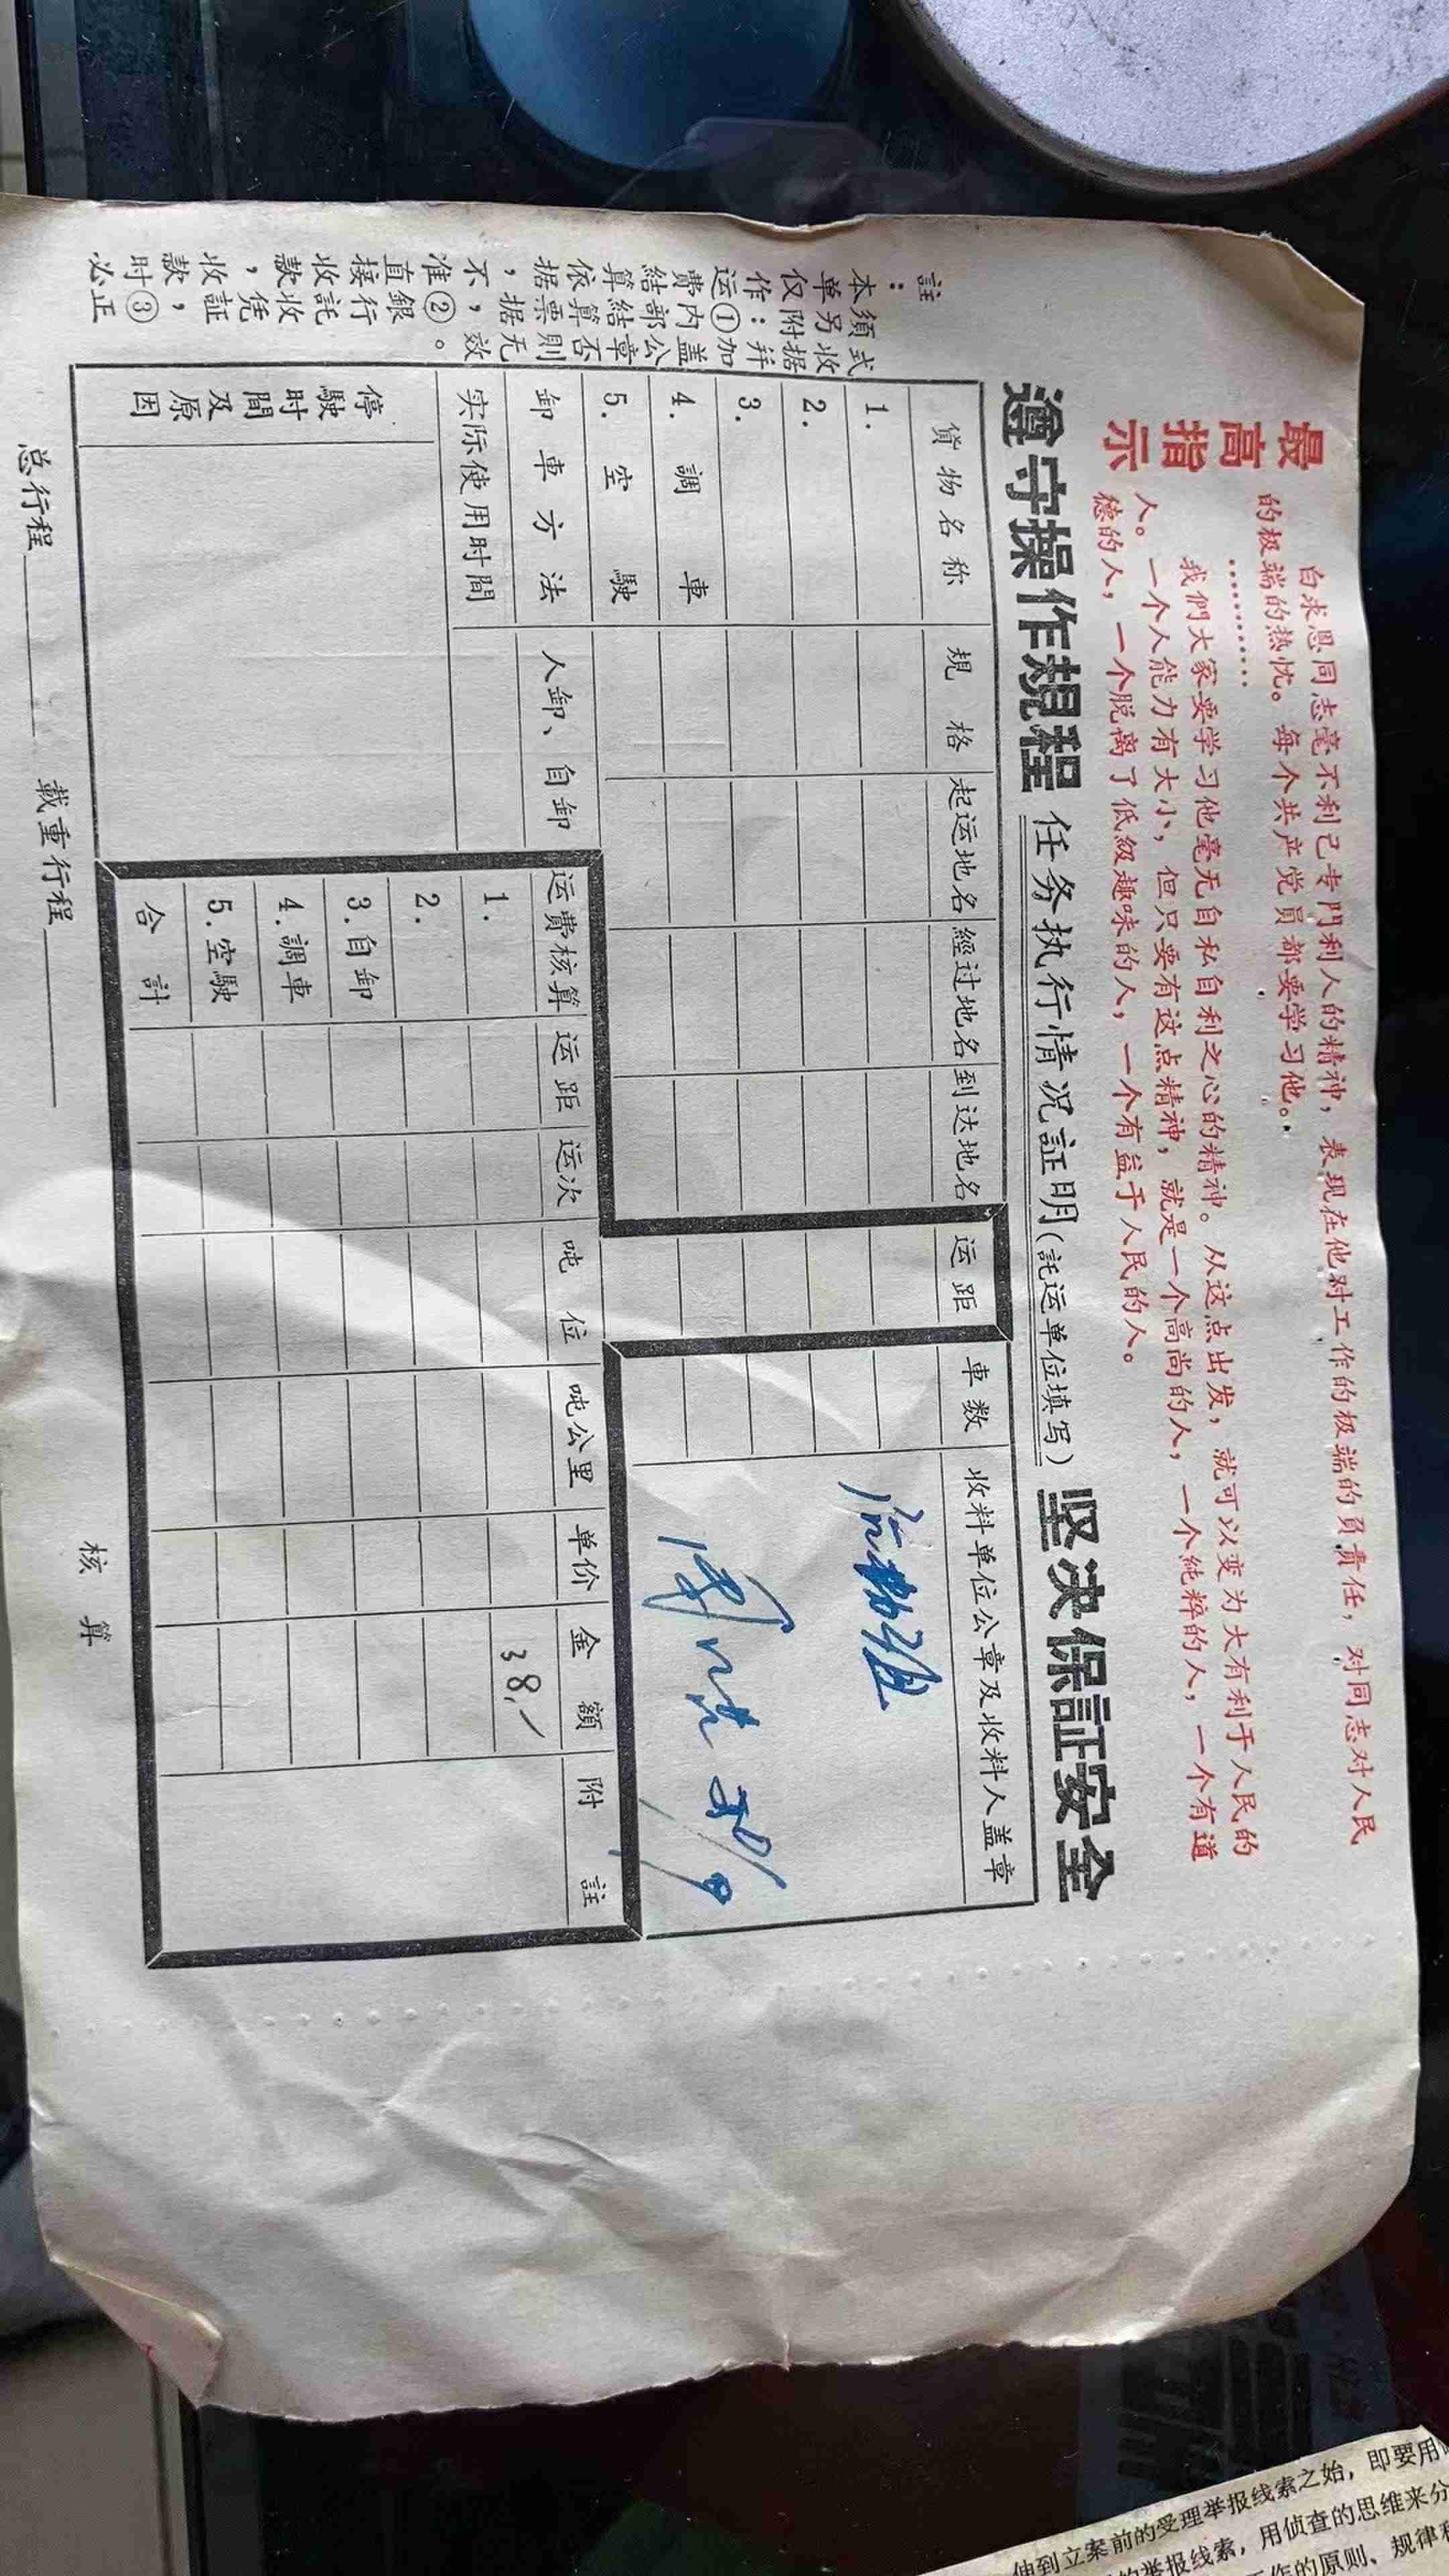 最高指示
白求恩同志毫不利己专門利人的精神，表现在他对工作的极端的負責任，对同志对人民
的极端的热忱。每个共产党員都要学习他。
…………
我們大家要学习他毫无自私自利之心的精神。从这点出发，就可以变为大有利于人民的
人。一个人能力有大小，但只要有这点精神，就是一个高尚的人，一个純粹的人，一个有道
德的人，一个脱离了低級趣味的人，一个有益于人民的人。
遵守操作規程 任务执行情况証明(託运单位填写) 坚决保証安全
貨物名称 規格 起运地名 經过地名 到达地名 运距 車数 收料单位公章及收料人盖章
1.
2.
3.
4. 調車
5. 空駛
卸車方法 人卸、自卸
实际使用时間
停駛时間及原因
运費核算 运距 运次 吨位 吨公里 单价 金額 附註
1. 38.
2.
3.自卸
4.調車
5.空駛
合計
总行程 載重行程 核算
註：
本单仅作：①
运費結算依据，不
准直接收款，凭
收款时必
須另附
加盖公章否則无效
②銀行託收
証，③正
式收据并
内部結算票据
即要用
伸到立案前的受理举报线索之始，
的举报线索，用侦查的思维来分
工作的原则、规律和